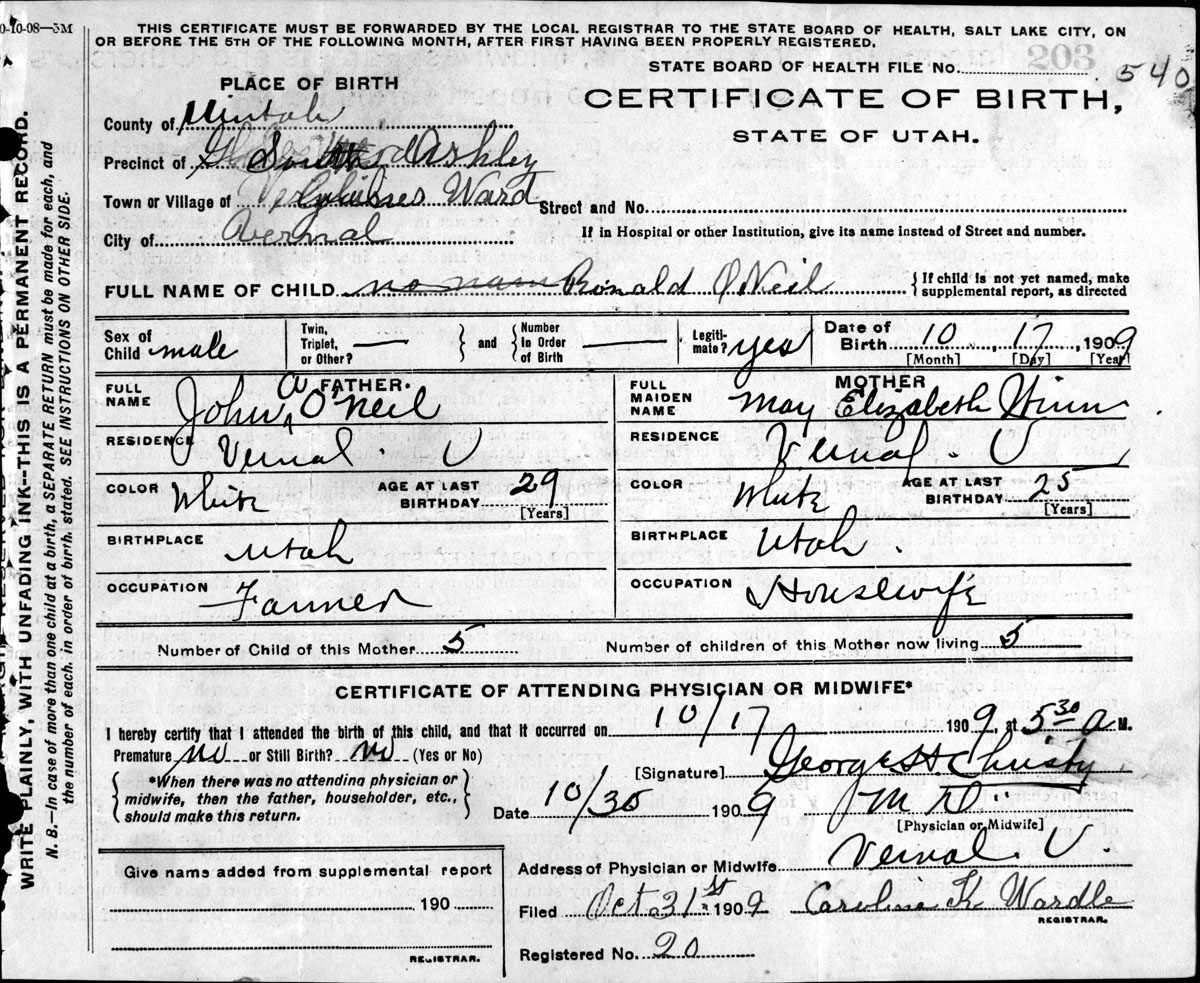 0-10-08—5M
THIS CERTIFICATE MUST BE FORWARDED BY THE LOCAL REGISTRAR TO THE STATE BOARD OF HEALTH, SALT LAKE CITY, ON
OR BEFORE THE 5TH OF THE FOLLOWING MONTH, AFTER FIRST HAVING BEEN PROPERLY REGISTERED.
203
STATE BOARD OF HEALTH FILE No. 540
PLACE OF BIRTH
CERTIFICATE OF BIRTH,
STATE OF UTAH.
County of Uintah
Precinct of Ashley
Town or Village of Ward
Street and No.
City of Vernal
If in Hospital or other Institution, give its name instead of Street and number.
FULL NAME OF CHILD no name Ronald O'Neil
If child is not yet named, make supplemental report, as directed
Sex of Child male
Twin, Triplet, or Other? —
and
Number In Order of Birth —
Legitimate? yes
Date of Birth 10 17, 1909
[Month] [Day] [Year]
FATHER.
FULL NAME John W O'Neil
RESIDENCE Vernal. U
COLOR White
AGE AT LAST BIRTHDAY 29
[Years]
BIRTHPLACE Utah
OCCUPATION Farmer
MOTHER
FULL MAIDEN NAME May Elizabeth Winn
RESIDENCE Vernal. U
COLOR White
AGE AT LAST BIRTHDAY 25
[Years]
BIRTHPLACE Utah.
OCCUPATION Housewife
Number of Child of this Mother 5
Number of children of this Mother now living 5
CERTIFICATE OF ATTENDING PHYSICIAN OR MIDWIFE*
I hereby certify that I attended the birth of this child, and that it occurred on 10/17 1909, at 5 30 a M.
Premature no or Still Birth? no (Yes or No)
*When there was no attending physician or
midwife, then the father, householder, etc.,
should make this return.
[Signature] George H Christy
Date 10/30 1909
M.D.
[Physician or Midwife]
Give name added from supplemental report
190
REGISTRAR.
Address of Physician or Midwife Vernal. U.
Filed Oct 31st 1909 Caroline K Wardle
REGISTRAR.
Registered No. 20
WRITE PLAINLY, WITH UNFADING INK--THIS IS A PERMANENT RECORD.
N. B.—In case of more than one child at a birth, a SEPARATE RETURN must be made for each, and
the number of each, in order of birth, stated. SEE INSTRUCTIONS ON OTHER SIDE.